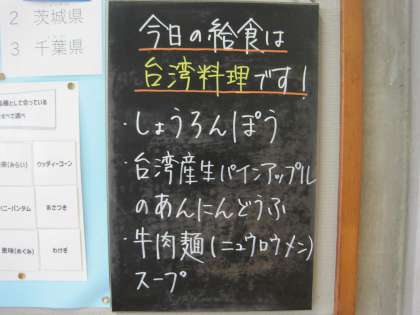 2 茨城県
3 千葉県
今日の給食は
台湾料理です！
・しょうろんぽう
・台湾産生パインアップル
のあんにんどうふ
・牛肉麺(ニュウロウメン)
スープ
ウッディーコーン
あさつき
わけぎ